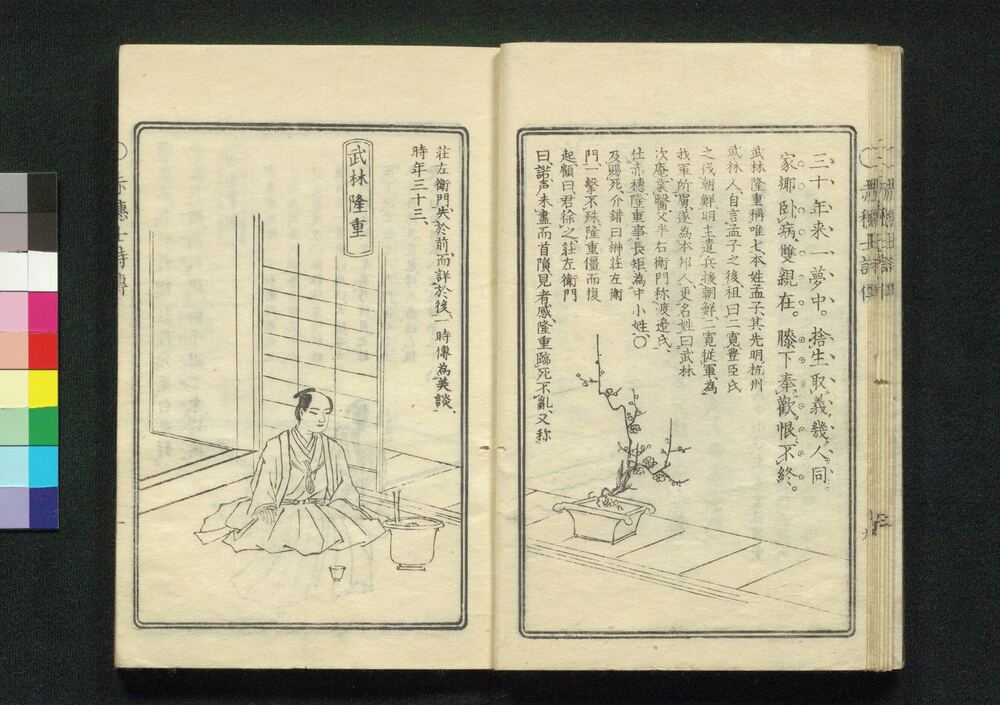 三十年来一夢中。捨生取義幾人同
家郷臥病雙親在。膝下奉歡恨不終。
武林隆重稱唯七本姓孟子、其先明杭州
武林人自言孟子之後祖曰二寛豊臣氏
之伐朝鮮明主遣兵援朝鮮、二寛従軍、為
我軍所虜、遂為本邦人更名姓曰武林
次庵業醫父半右衛門称渡邉氏、
仕赤穂隆重事長矩為中小姓、〇
及賜死、介錯曰榊荘左衛
門、一撃不殊隆重僵而復
起顧曰、君徐之、荘左衛門
曰、諾、声未盡而首隕、見者感隆重臨死不亂、又称
荘左衛門失於前、而詳於後、一時傳為美談、
時年三十三、
武林隆重